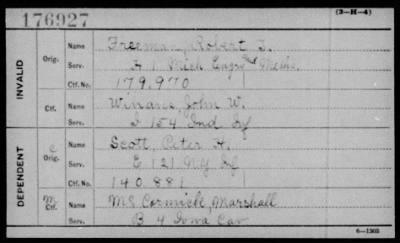 176927
(3-H-4)
INVALID
Orig.
Name Freeman, Robert J.
Serv. H 1 Mich Engrs & Mechs.
Ctf. No. 179,970
Ctf.
Name Winans, John W.
Serv. I 154 Ind Inf
DEPENDENT
C Orig.
Name Scott, Peter H.
Serv. E 121 N.Y. Inf
Ctf. No. 140.881
M Ctf.
Name McCormick, Marshall
Serv. B 4 Iowa Cav
6-1303